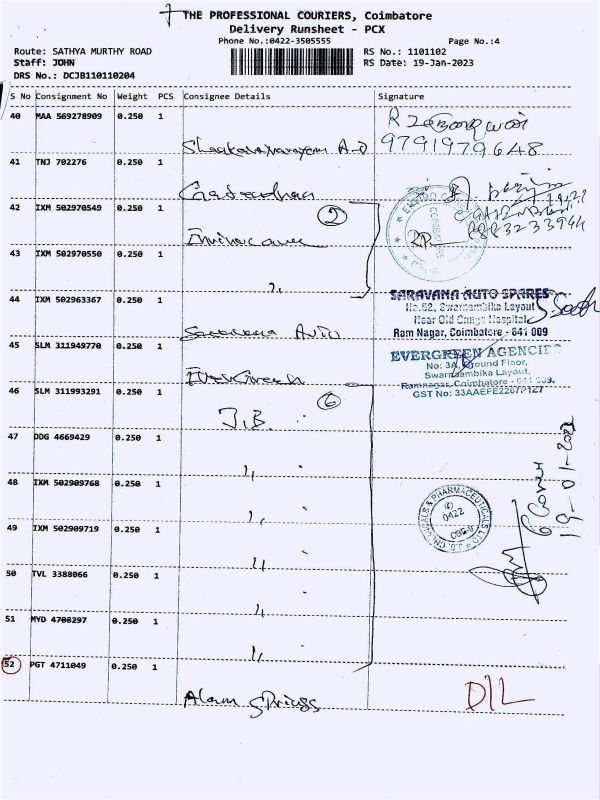 THE PROFESSIONAL COURIERS, Coimbatore
Delivery Runsheet - PCX
Phone No.:0422-3505555
Page No.:4
Route: SATHYA MURTHY ROAD
RS No.: 1101102
Staff: JOHN
RS Date: 19-Jan-2023
DRS No.: DCJB110110204
S No Consignment No Weight PCS Consignee Details Signature
40 MAA 569278909 0.250 1
9791979648
41 TNJ 702276 0.250 1
42 IXM 502970549 0.250 1
2
43 IXM 502970550 0.250 1
"
44 IXM 502963367 0.250 1
SARAVANA AUTO SPARES
No.62, Swarnambika Layout
Near Old Ganga Hospital
Ram Nagar, Coimbatore - 641 009
Saravana Auto
45 SLM 311949770 0.250 1
EVERGREEN AGENCIES
No: 3A, Ground Floor,
Swarnambika Layout,
Ramnagar, Coimbatore - 641 009.
Evergreen
46 SLM 311993291 0.250 1
6
J.B.
47 DDG 4669429 0.250 1
"
48 IXM 502909768 0.250 1
"
49 IXM 502909719 0.250 1
"
50 TVL 3388066 0.250 1
"
51 MYD 4708297 0.250 1
"
52 PGT 4711049 0.250 1
Alam Springs
D/L